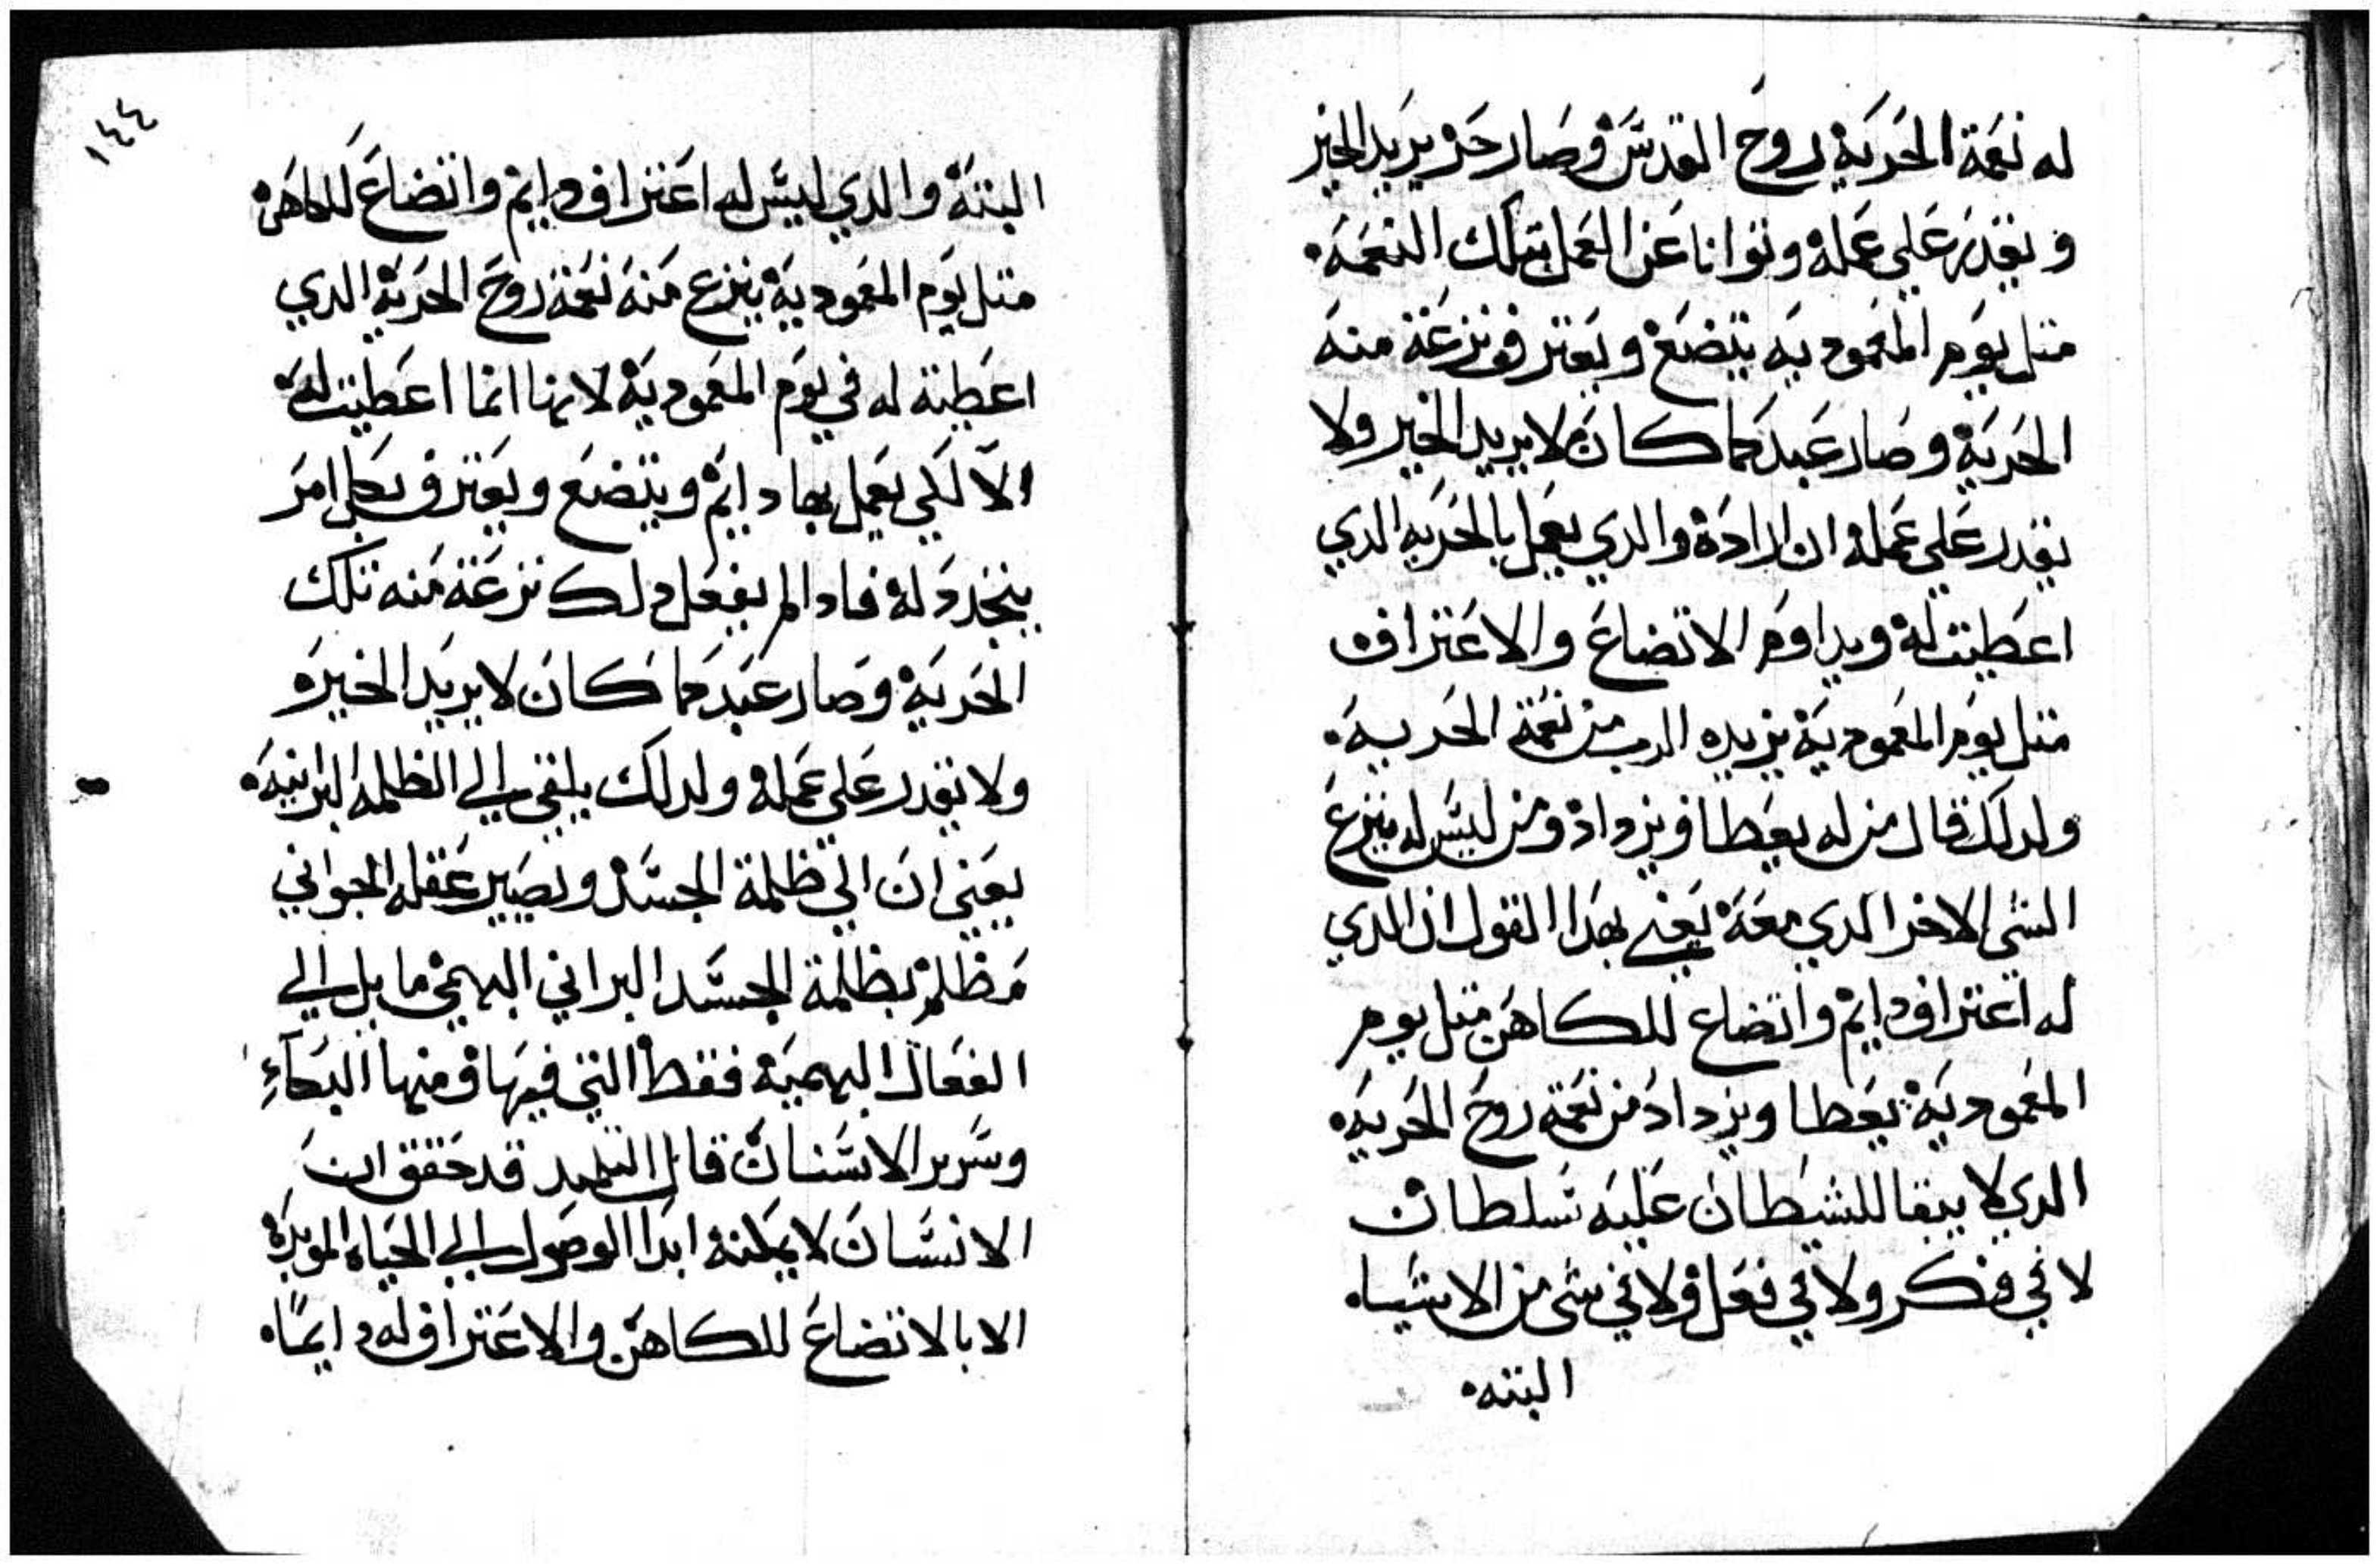 له نعمة الحرية روح القدس وصار حر يريد الخير
ويقدر علي عمله وتوانا عن العمل بتلك النعمه
متل يوم المعموديه يتضع ويعترف نزعة منه
الحرية وصار عبد كما كان لا يريد الخير ولا
يقدر علي عمله ان اراده والدي يعمل بالحريه الدي
اعطيت له ويداوم الاتضاع والاعتراف
متل يوم المعمودية يزيده الرب من نعمة الحريه
ولدلك قال من له يعطا ويزداد ومن ليس له ينزع
الشي الاخر الدي معه يعني بهدا القول ان الدي
له اعتراف دايم واتضاع للكاهن متل يوم
المعمودية يعطا ويزداد من نعمة روح الحريه
الدي لا يبقا للشيطان عليه سلطان
لا في فكر ولا في فعل ولا في شي من الاشياء
البته
١٤٤
البتة والدي ليس له اعتراف دايم واتضاع للكاهن
متل يوم المعمودية ينزع منه نعمة روح الحرية الدي
اعطية له في يوم المعمودية لانها انما اعطيت له
الا لكي يعمل بها دايم ويتضع ويعترف بكل امر
يتجدد له فادا لم يفعل دلك نزعة منه تلك
الحرية وصار عبد كما كان لا يريد الخير
ولا يقدر علي عمله ولدلك يلقي الي الظلمه البرانيه
يعني ان الي ظلمة الجسد ويصير عقله الجواني
مظلم بظلمة الجسد البراني البهيمي مايل الي
الفعال البهميه فقط التي فيها ومنها البكاء
وسرير الاسنان قال التلميد قد حقق ان
الانسان لا يمكنه ابدا الوصول الي الحياه الموبدة
الا بالاتضاع للكاهن والاعتراف له دايمًا